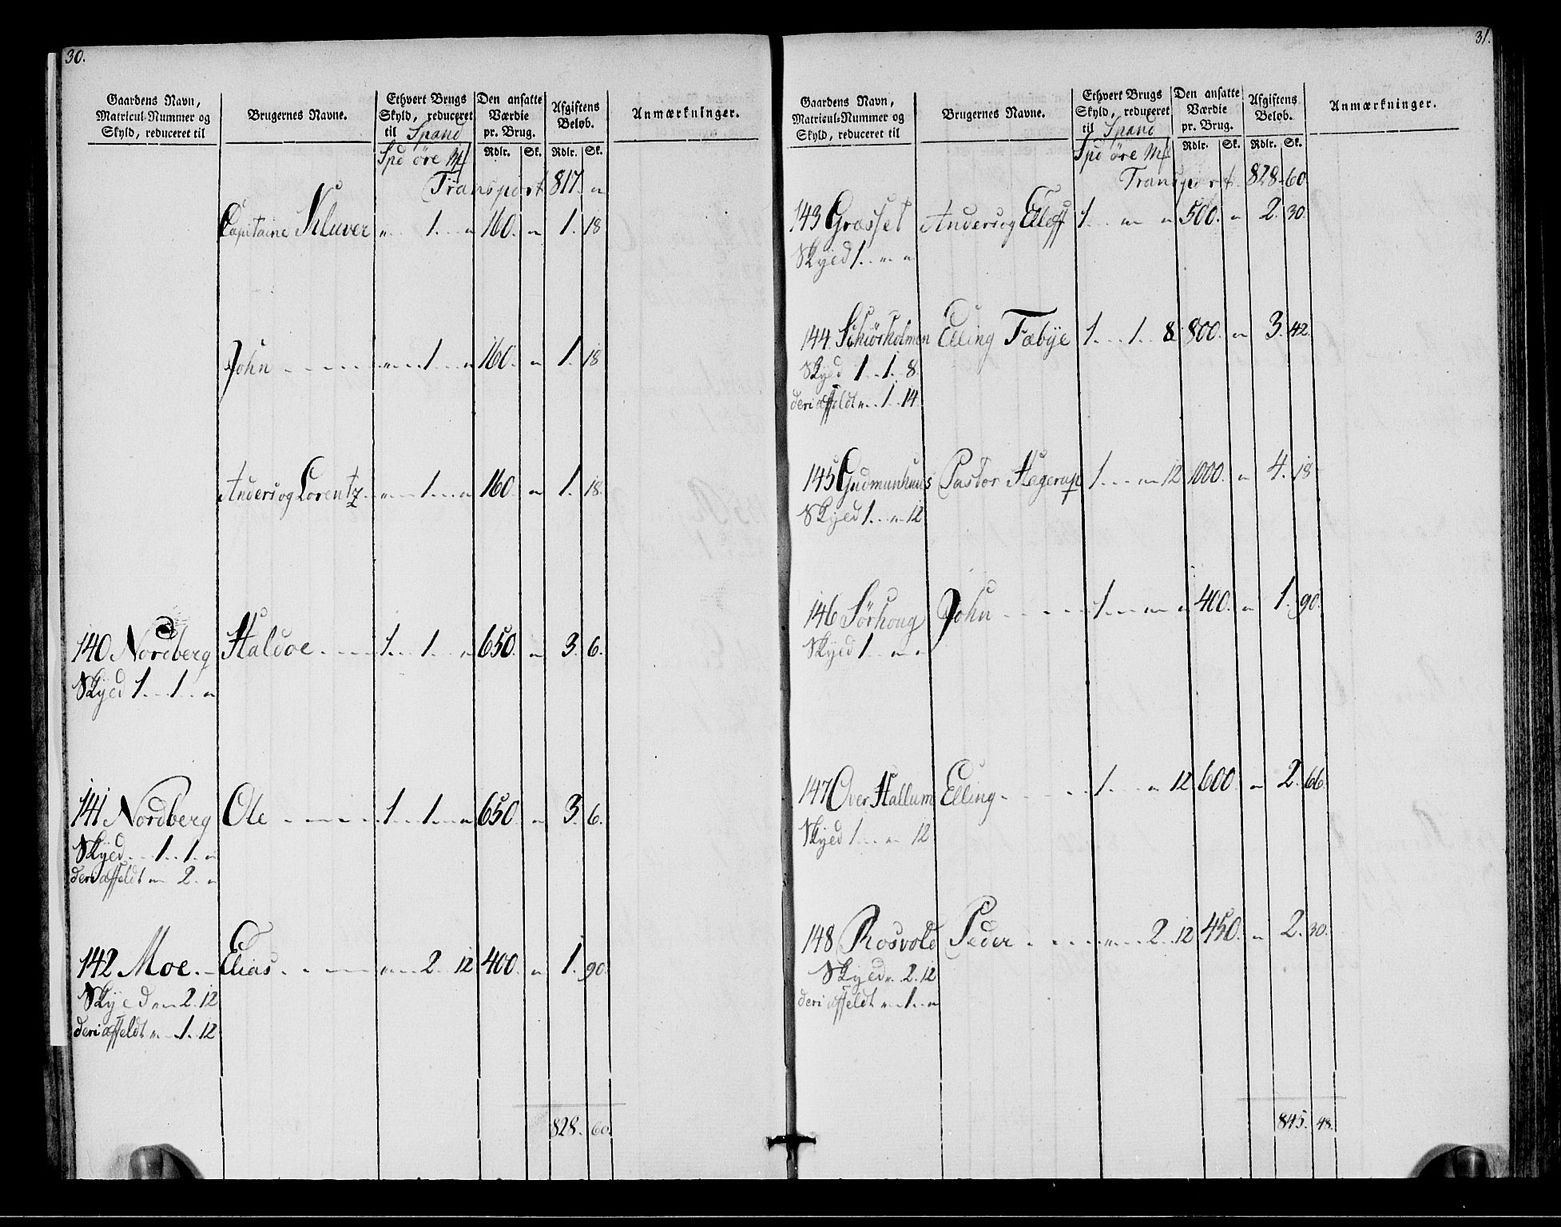 30.
Gaardens Navn, Matricul-Nummer og Skyld, reduceret til
Brugernes Navne.
Ethvert Brugs Skyld, reduceret til Spand
Den ansatte Værdie pr. Brug.
Afgiftens Beløb.
Anmærkninger.
Spd øre Mk Rdlr. Sk. Rdlr. Sk.
Transport 817. "
Capitaine Kluver " 1. " 160. " 1. 18
John " 1 " 160. " 1. 18
Anders og Lorentz " 1. " 160. " 1. 18.
140 Nordberg Haldoe 1. 1. " 650. " 3. 6.
Skyld 1. 1. "
141 Nordberg Ole 1. 1. " 650. " 3. 6.
Skyld 1. 1. "
deri affeldt " 2. "
142 Moe. Elias. " 2. 12 400. " 1. 90.
Skyld " 2. 12
deri affeldt " 1. 12
828. 60.
31.
Gaardens Navn, Matricul-Nummer og Skyld, reduceret til
Brugernes Navne.
Ethvert Brugs Skyld, reduceret til Spand
Den ansatte Værdie pr. Brug.
Afgiftens Beløb.
Anmærkninger.
Spd øre Mk Rdlr. Sk. Rdlr. Sk.
Transport. 828. 60
143 Grosset Anders og Elleff 1 " " 500. " 2. 30.
Skyld 1. " "
144. Schiørholmen Elling Fæbye 1. 1. 8 800. " 3. 42.
Skyld 1. 1. 8.
deri affeldt " 1. 14
145 Gudmunhuus Pastor Hegerup 1. " 12 1000. " 4. 18
Skyld 1. " 12
146 Sørhoug John 1. " " 400. " 1. 90.
Skyld 1. " "
147 Over Hallum Elling. 1. " 12 600 " 2. 66
Skyld 1. " 12
148 Rosvold Peder " 2. 12 450. " 2. 30.
Skyld " 2. 12
deri affeldt " 1. "
845. 48.